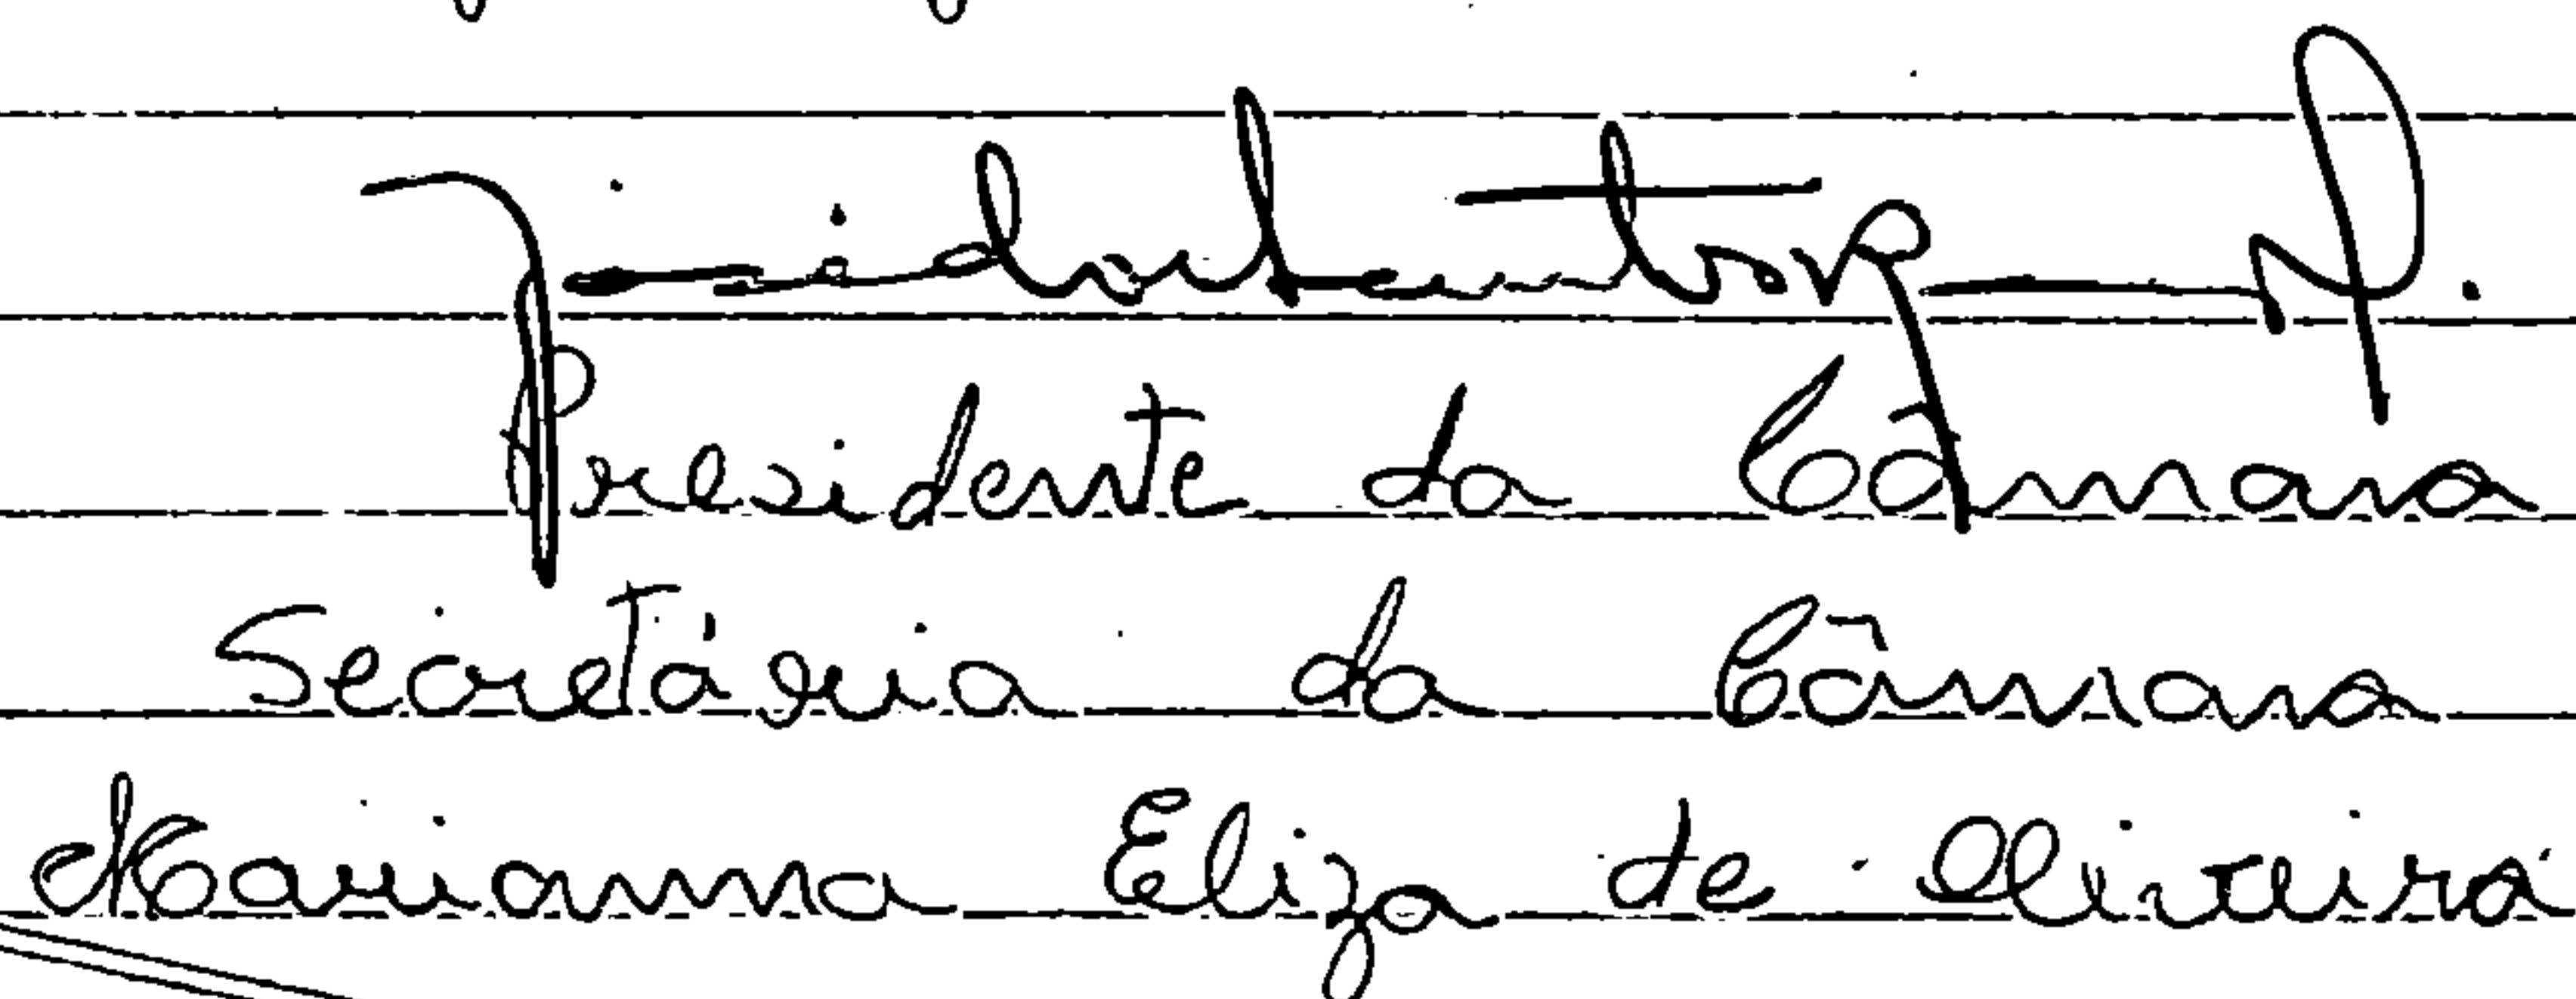 Presidente da Câmara
Secretária da Câmara
Marianna Eliza de Oliveira